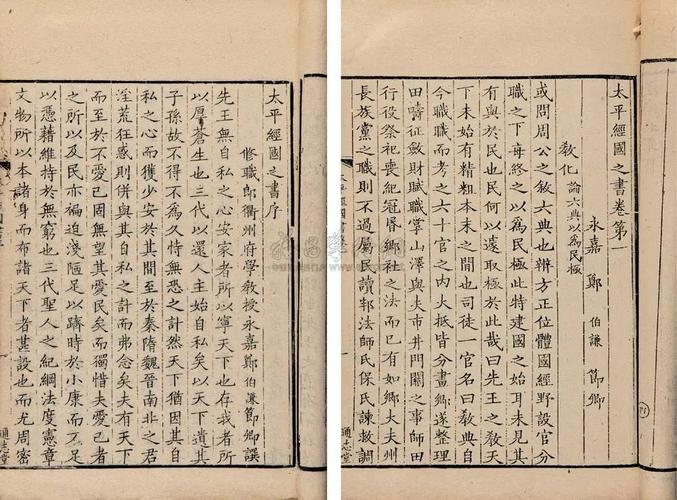 太平經國之書卷第一
永嘉 鄭 伯謙 節卿
教化 論六典以為民極
或問周公之敘六典也辨方正位體國經野設官分
職之下每終之以為民極此特建國之始耳未見其
有與於民也何以遽取極於此哉曰先王之教天
下未始有精粗本末之間也司徒一官名曰教典自
今職而考之六十官之內大抵皆分畫鄉遂整理
田疇征斂財賦掌山澤與夫市井門關之事師田
行役祭祀喪紀冠昏鄉社之法而已有如鄉大夫州
長族黨之職則不過屬民讀邦法師氏保氏諫救調
通志堂
太平經國之書序
修職郎衢州府學教授永嘉鄭伯謙節卿譔
先王無自私之心安家者所以寧天下也存我者所
以厚蒼生也三代以還人主始自私矣以天下遺其
子孫故不得不為久恃無恐之計然天下猶因其自
私之心而獲少安於其間至於秦隋魏晉南北之君
淫荒狂惑則併與其自私之計而弗念矣夫有天下
而至於不愛己固無望其愛民矣而獨惜夫愛己者
之所以及民亦褊迫淺陋足以躋時於小康而不足
以憑藉維持於無窮也三代聖人之紀綱法度憲章
文物所以本諸身而布諸天下者甚設也而尤周密
通志堂